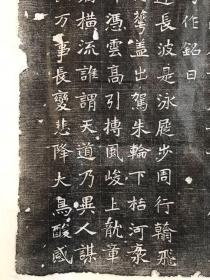 作銘曰
長波是泳屣步周行翰飛
蕚蓋出駕朱輪下枯河衮
憑雲高引摶風峻上 軍
描流誰謂天道乃異人謀
万事長夔悲降大鳥酸感